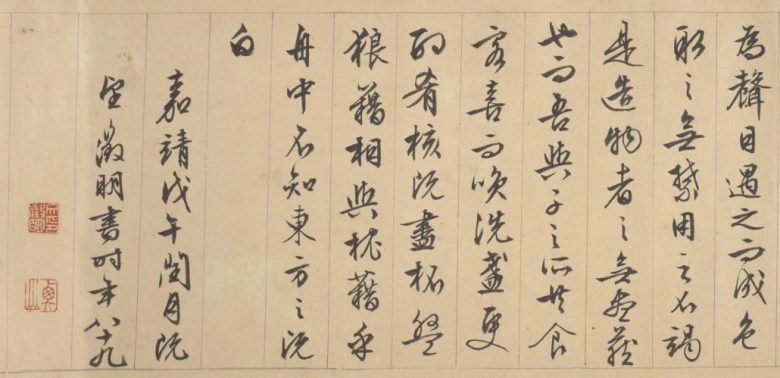 為聲目遇之而成色
取之無禁用之不竭
是造物者之無盡藏
也而吾與子之所共食
客喜而咲洗盞更
酌肴核既盡杯盤
狼藉相與枕藉乎
舟中不知東方之既
白
嘉靖戊午閏月既
望徵明書時年八十九